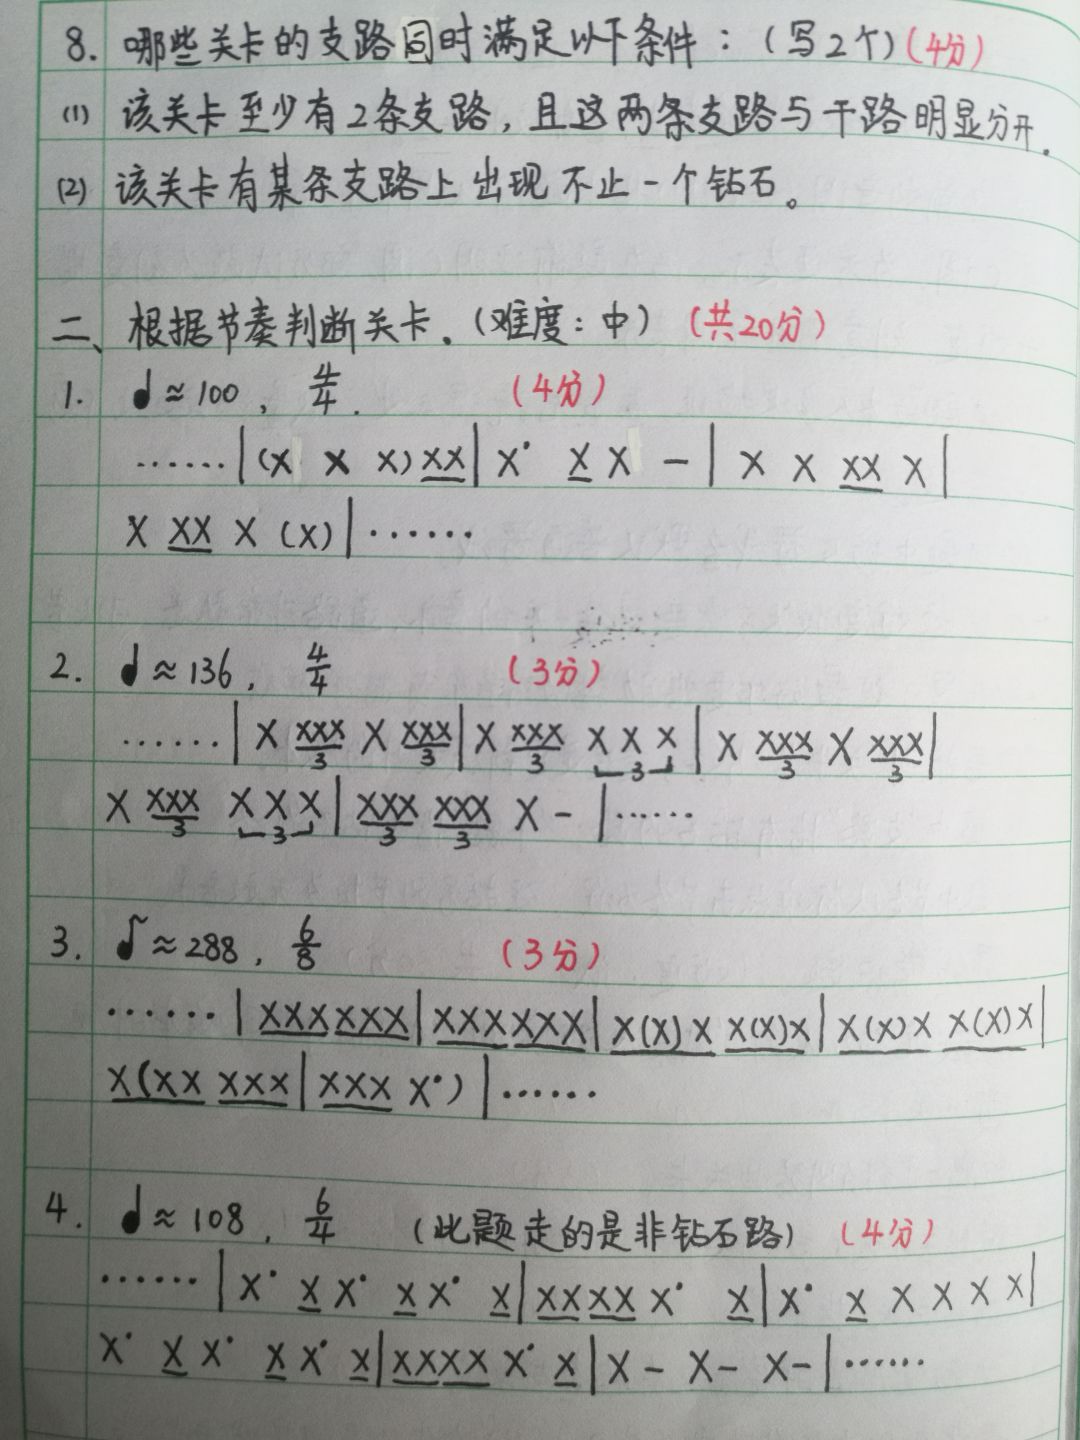 8. 哪些关卡的支路同时满足以下条件：(写2个)(4分)
(1) 该关卡至少有2条支路，且这两条支路与干路明显分开.
(2) 该关卡有某条支路上出现不止一个钻石。
二、根据节奏判断关卡.(难度：中)(共20分)
1. ♩≈100, 4/4. (4分)
······|(X X X) XX|X· X X －|X X XX X|
X XX X (X)|······
2. ♩≈136, 4/4 (3分)
······|X XXX 3 X XXX 3|X XXX 3 X X X 3|X XXX 3 X XXX 3|
X XXX 3 X X X 3|XXX 3 XXX 3 X －|······
3. ♪≈288, 6/8 (3分)
······|XXX XXX|XXX XXX|X(X)X X(X)X|X(X)X X(X)X|
X(XX XXX|XXX X·)|······
4. ♩≈108, 6/4 (此题走的是非钻石路) (4分)
······|X· X X· X X· X|XX XX X· X|X· X X X X X|
X· X X· X X· X|XXXX X· X|X－ X－ X－|······